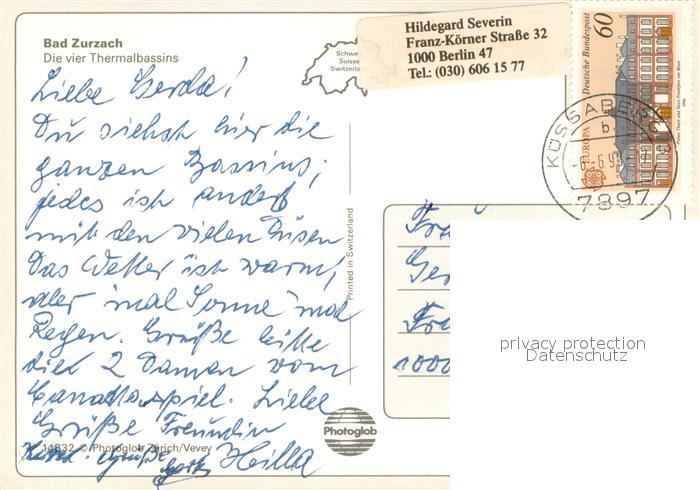 Bad Zurzach
Die vier Thermalbassins
Schweiz
Suisse
Switzerland
Hildegard Severin
Franz-Körner Straße 32
1000 Berlin 47
Tel.: (030) 606 15 77
60
Deutsche Bundespost
EUROPA
KÜSSABERG
b
7897
Liebe Gerda!
Du siehst hier die
ganzen Bassins;
jedes ist anders
mit den vielen Düsen
Das Wetter ist warm,
aber mal Sonne mal
Regen. Grüße bitte
die 2 Damen vom
Canastaspiel. Liebe
Grüße Freundin
Hilla
Grüße
Printed in Switzerland
1000
privacy protection
Datenschutz
14832 © Photoglob Zürich/Vevey
Photoglob